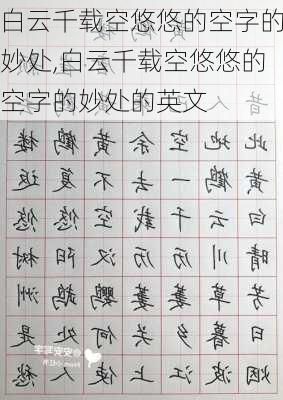 白云千载空悠悠的空字的
妙处,白云千载空悠悠的
空字的妙处的英文
昔人
此地空余黄鹤楼
黄鹤一去不复返
白云千载空悠悠
晴川历历汉阳树
芳草萋萋鹦鹉洲
日暮乡关何处是
烟波江上使人愁
@安安写字